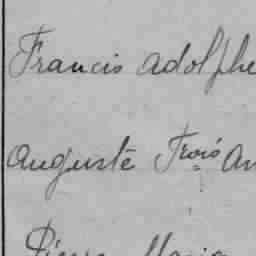 Francis Adolphe
Auguste Trois An
Pierre Marie